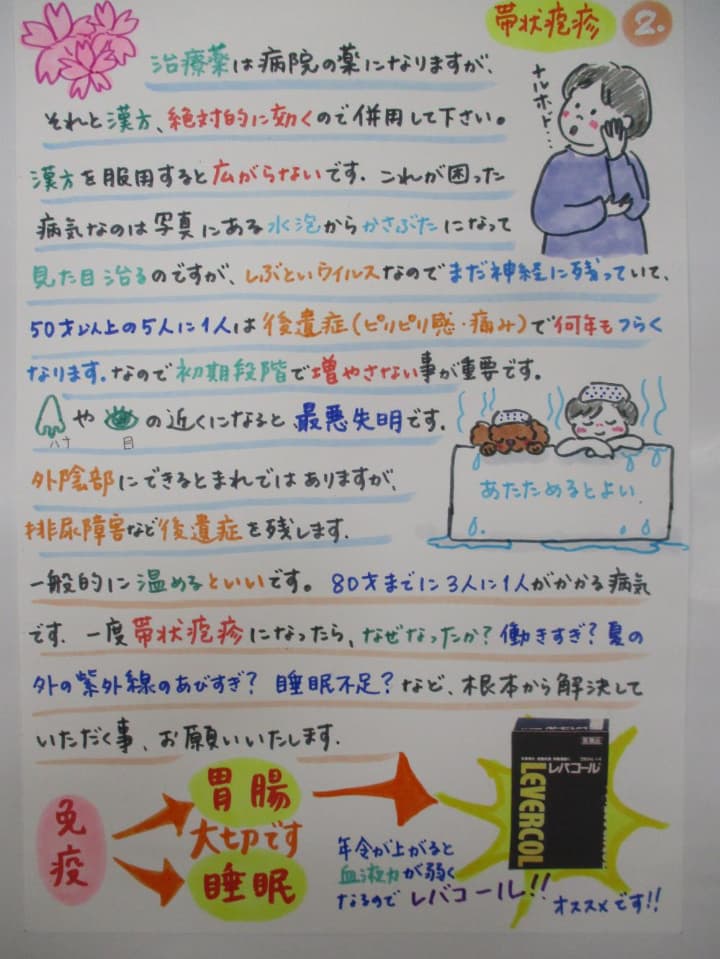 帯状疱疹 2.
治療薬は病院の薬になりますが、
それと漢方、絶対的に効くので併用して下さい。
ナルホド…
漢方を服用すると広がらないです。これが困った
病気なのは写真にある水泡からかさぶたになって
見た目治るのですが、しぶといウイルスなのでまだ神経に残っていて、
50才以上の5人に1人は後遺症(ピリピリ感・痛み)で何年もつらく
なります。なので初期段階で増やさない事が重要です。
や の近くになると最悪失明です。
ハナ 目
外陰部にできるとまれではありますが、
あたためるとよい
排尿障害など後遺症を残します。
一般的に温めるといいです。80才までに3人に1人がかかる病気
です。一度帯状疱疹になったら、なぜなったか?働きすぎ?夏の
外の紫外線のあびすぎ?睡眠不足?など、根本から解決して
いただく事、お願いいたします。
免疫
胃腸
大切です
睡眠
医薬品
レバコール
LEVERCOL
年令が上がると
血液力が弱く
なるのでレバコール!!
オススメです!!